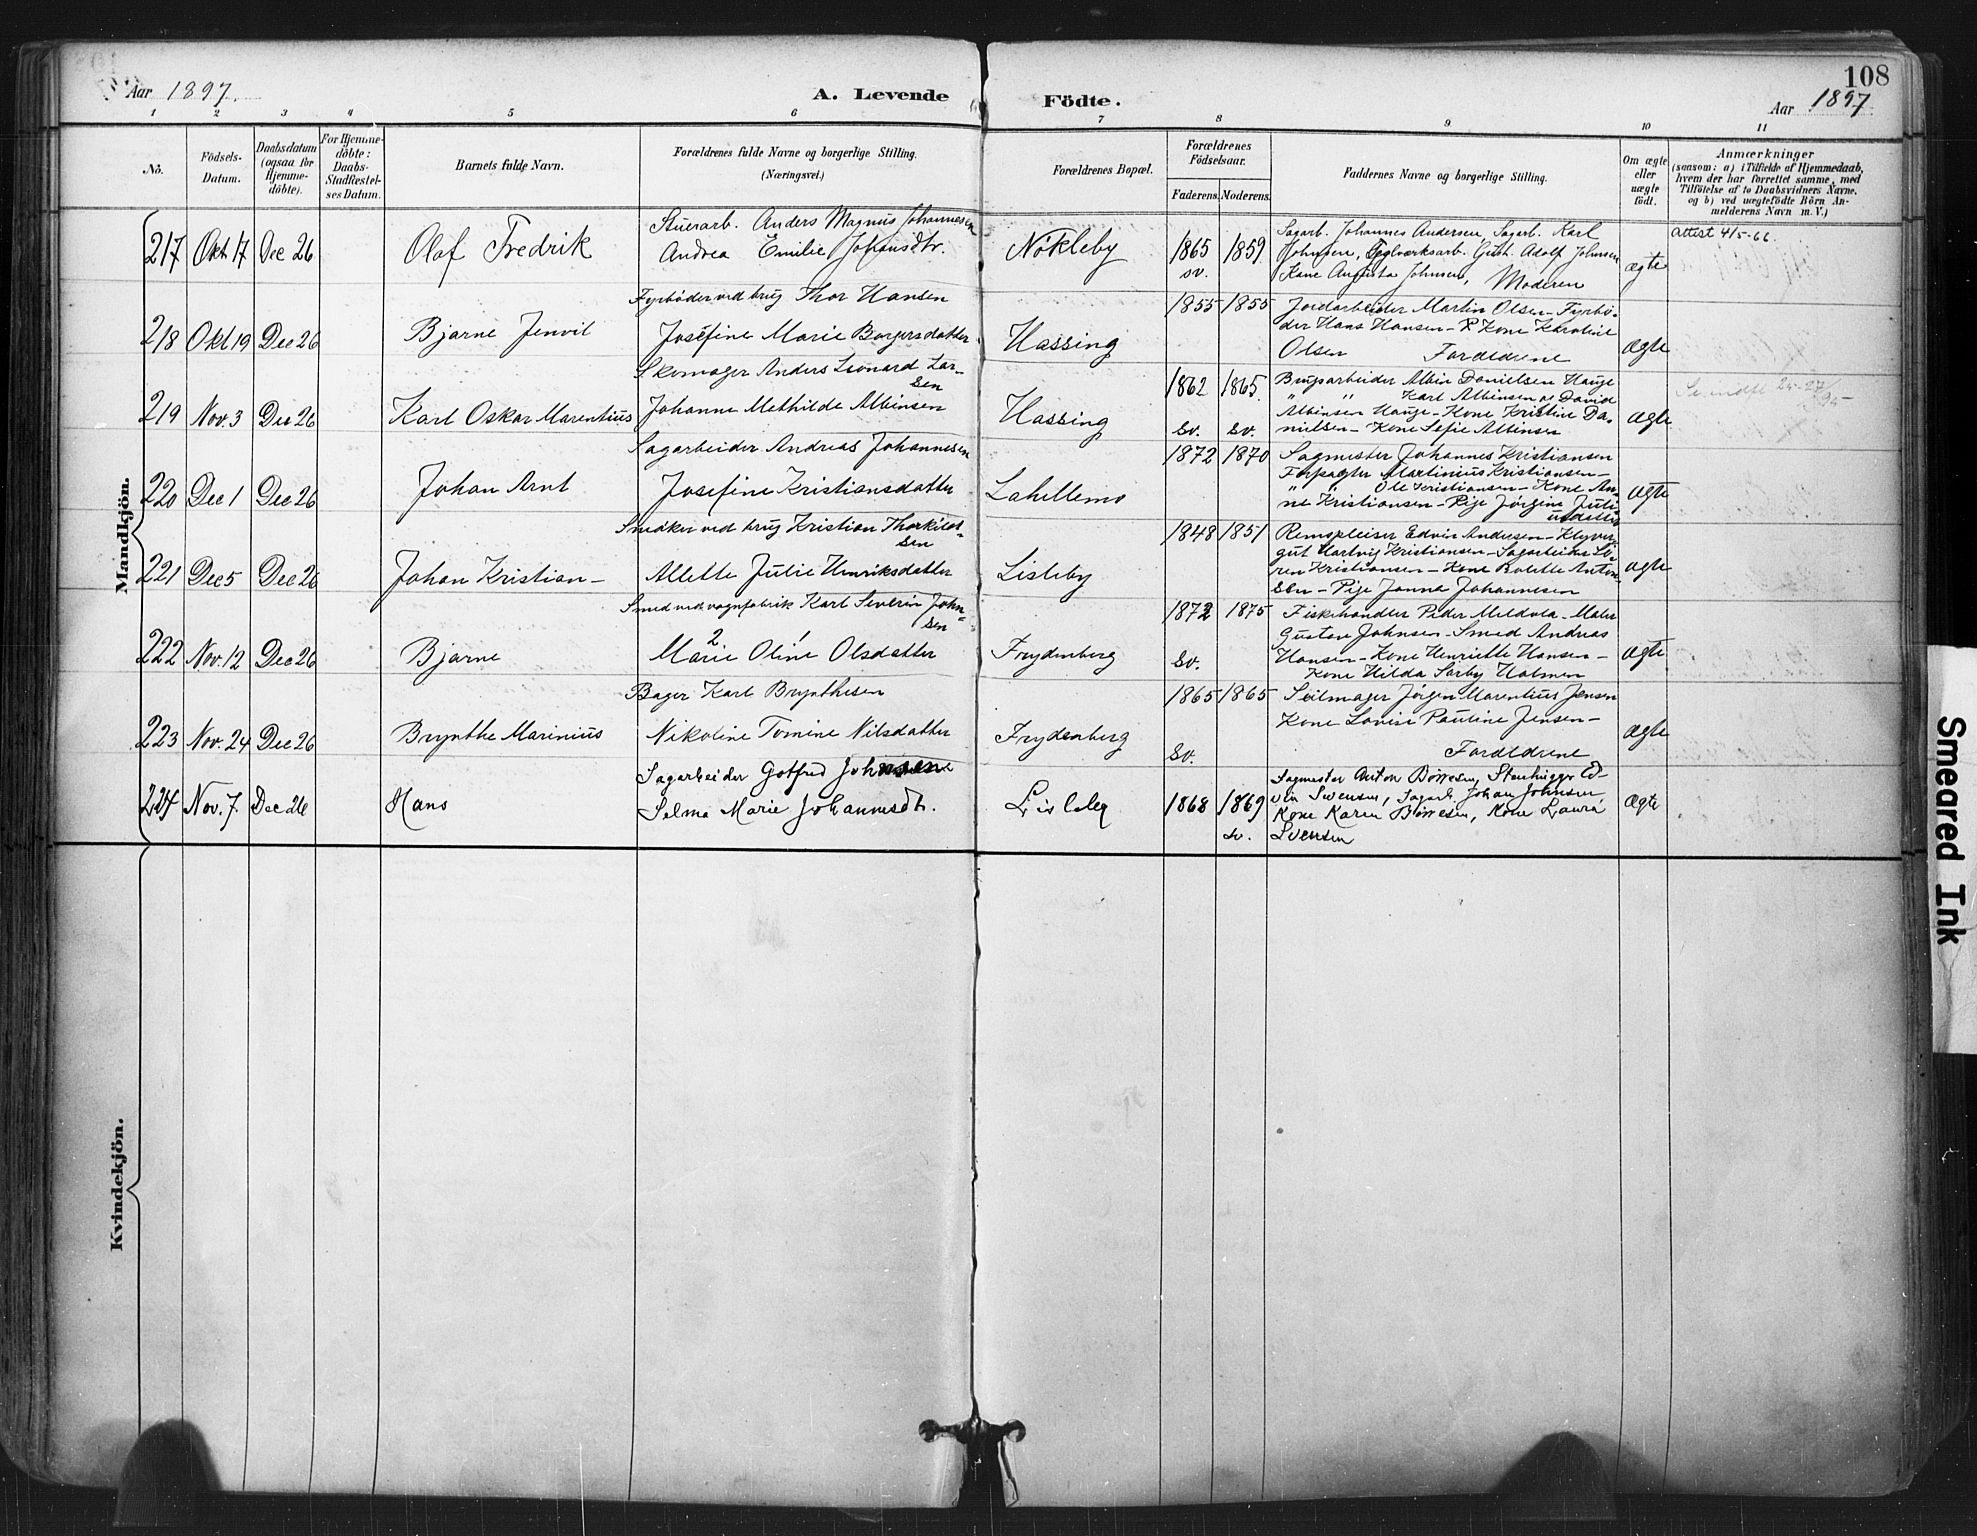 108
Aar 1897.
A. Levende
Födte.
Aar 1897
1 2 3 4 5 6 7 8 9 10 11
No.
Födsels-
Datum.
Daabsdatum
(ogsaa for
Hjemme-
döbte).
For Hjemme-
döbte:
Daabs-
Stadfestel-
ses Datum.
Barnets fulde Navn.
Forældrenes fulde Navne og borgerlige Stilling.
(Næringsvei.)
Forældrenes Bopæl.
Forældrenes
Födselsaar.
Faderens.
Moderens.
Faddernes Navne og borgerlige Stilling.
Om ægte
eller
uægte
födt.
Anmærkninger
(saasom: a) i Tilfælde af Hjemmedaab,
hvem der har forrettet samme, med
Tilföielse af to Daabsvidners Navne,
og b) ved uægtefödte Börn An-
melderens Navn m. V.)
Mandkjön.
217 Okt 17 Dec 26 Olaf Fredrik
Stuerarb. Anders Magnus Johannesen
Andrea Emilie Johansdtr.
Nøkleby
1865 1859
sv.
Sagarb. Johannes Andersen, Sagarb. Karl
Johnsen, Teglverksarb. Gust. Adolf Johnsen
Kone Augusta Johnsen, Moderen
ægte
Attest 4/5-66
218 Okt 19 Dec 26 Bjarne Jenvil
Fyrbøder ved brug Thor Hansen
Josefine Marie Borgersdatter
Hassing
1855 1855
Jordarbeider Martin Olsen - Fyrbø-
der Hans Hansen - Kone Karoline
Olsen Forældrene
ægte
219 Nov. 3 Dec 26 Karl Oskar Marentius
Skomager Anders Leonard Lar-
sen
Johanne Mathilde Albinsen
Hassing
1862 1865
sv. sv.
Brugsarbeider Albin Danielsen Hauge
" " Karl Albinsen og David
Albinsen Hauge - Kone Kristine Da-
nielsen - Kone Sofie Albinsen
ægte
220 Dec 1 Dec 26 Johan Arnt
Sagarbeider Andreas Johannesen
Josefine Kristiansdatter
Lahellemo
1872 1870
Sagmester Johannes Kristiansen
Forpagter Martinius Kristiansen -
" Ole Kristiansen - Kone An-
ne Kristiansen - Pige Jørgine Juli-
usdatter
ægte
221 Dec 5 Dec 26 Johan Kristian -
Smedker ved brug Kristian Thorkild-
sen
Allette Julie Henriksdatter
Lisleby
1848 1851
Remspleiser Edvin Andersen - Klyver-
gut Hartvig Kristiansen - Sagarbeider Sø-
ren Kristiansen - Kone Bolette Anton
sen - Pige Janna Johannesen
ægte
222 Nov. 12 Dec 26 Bjarne
Smed ved vognfabrik Karl Severin John-
sen
2 1
Marie Oline Olsdatter
Frydenberg
1872 1875
sv.
Fiskehandler Peder Meldola - Maler
Gustav Johnsen - Smed Andreas
Hansen - Kone Henriette Hansen -
Kone Hilda Sørby Holmen
ægte
223 Nov. 24 Dec 26 Brynthe Marinius
Bager Karl Brynthesen
Nikoline Tomine Nilsdatter
Frydenberg
1865 1865
sv.
Seilmager Jørgen Marentius Jensen
Kone Lovise Pauline Jensen -
Forældrene
ægte
224 Nov. 7 Dec 26 Hans
Sagarbeider Gotfred Johnsen
Selma Marie Johannesdt.
Lisleby
1868 1869
sv.
Sagmester Anton Børresen, Stenhugger Ed-
vin Svensen, Sagarb. Johan Johnsen
Kone Karen Børresen, Kone Laura
Svensen
ægte
Kvindekjön.
Smeared Ink